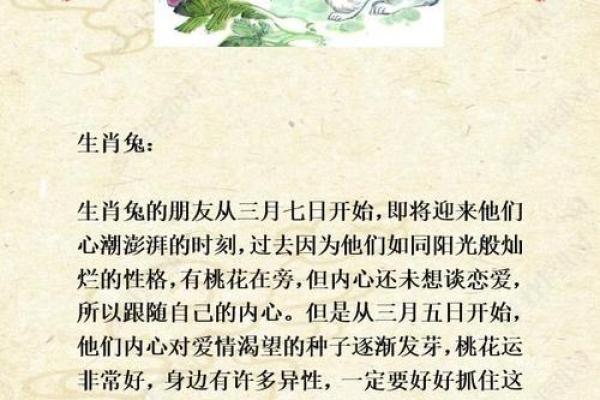 生肖兔：
生肖兔的朋友从三月七日开始，即将迎来他们
心潮澎湃的时刻，过去因为他们如同阳光般灿
烂的性格，有桃花在旁，但内心还未想谈恋爱，
所以跟随自己的内心。但是从三月五日开始，
他们内心对爱情渴望的种子逐渐发芽，桃花运
非常好，身边有许多异性，一定要好好抓住这